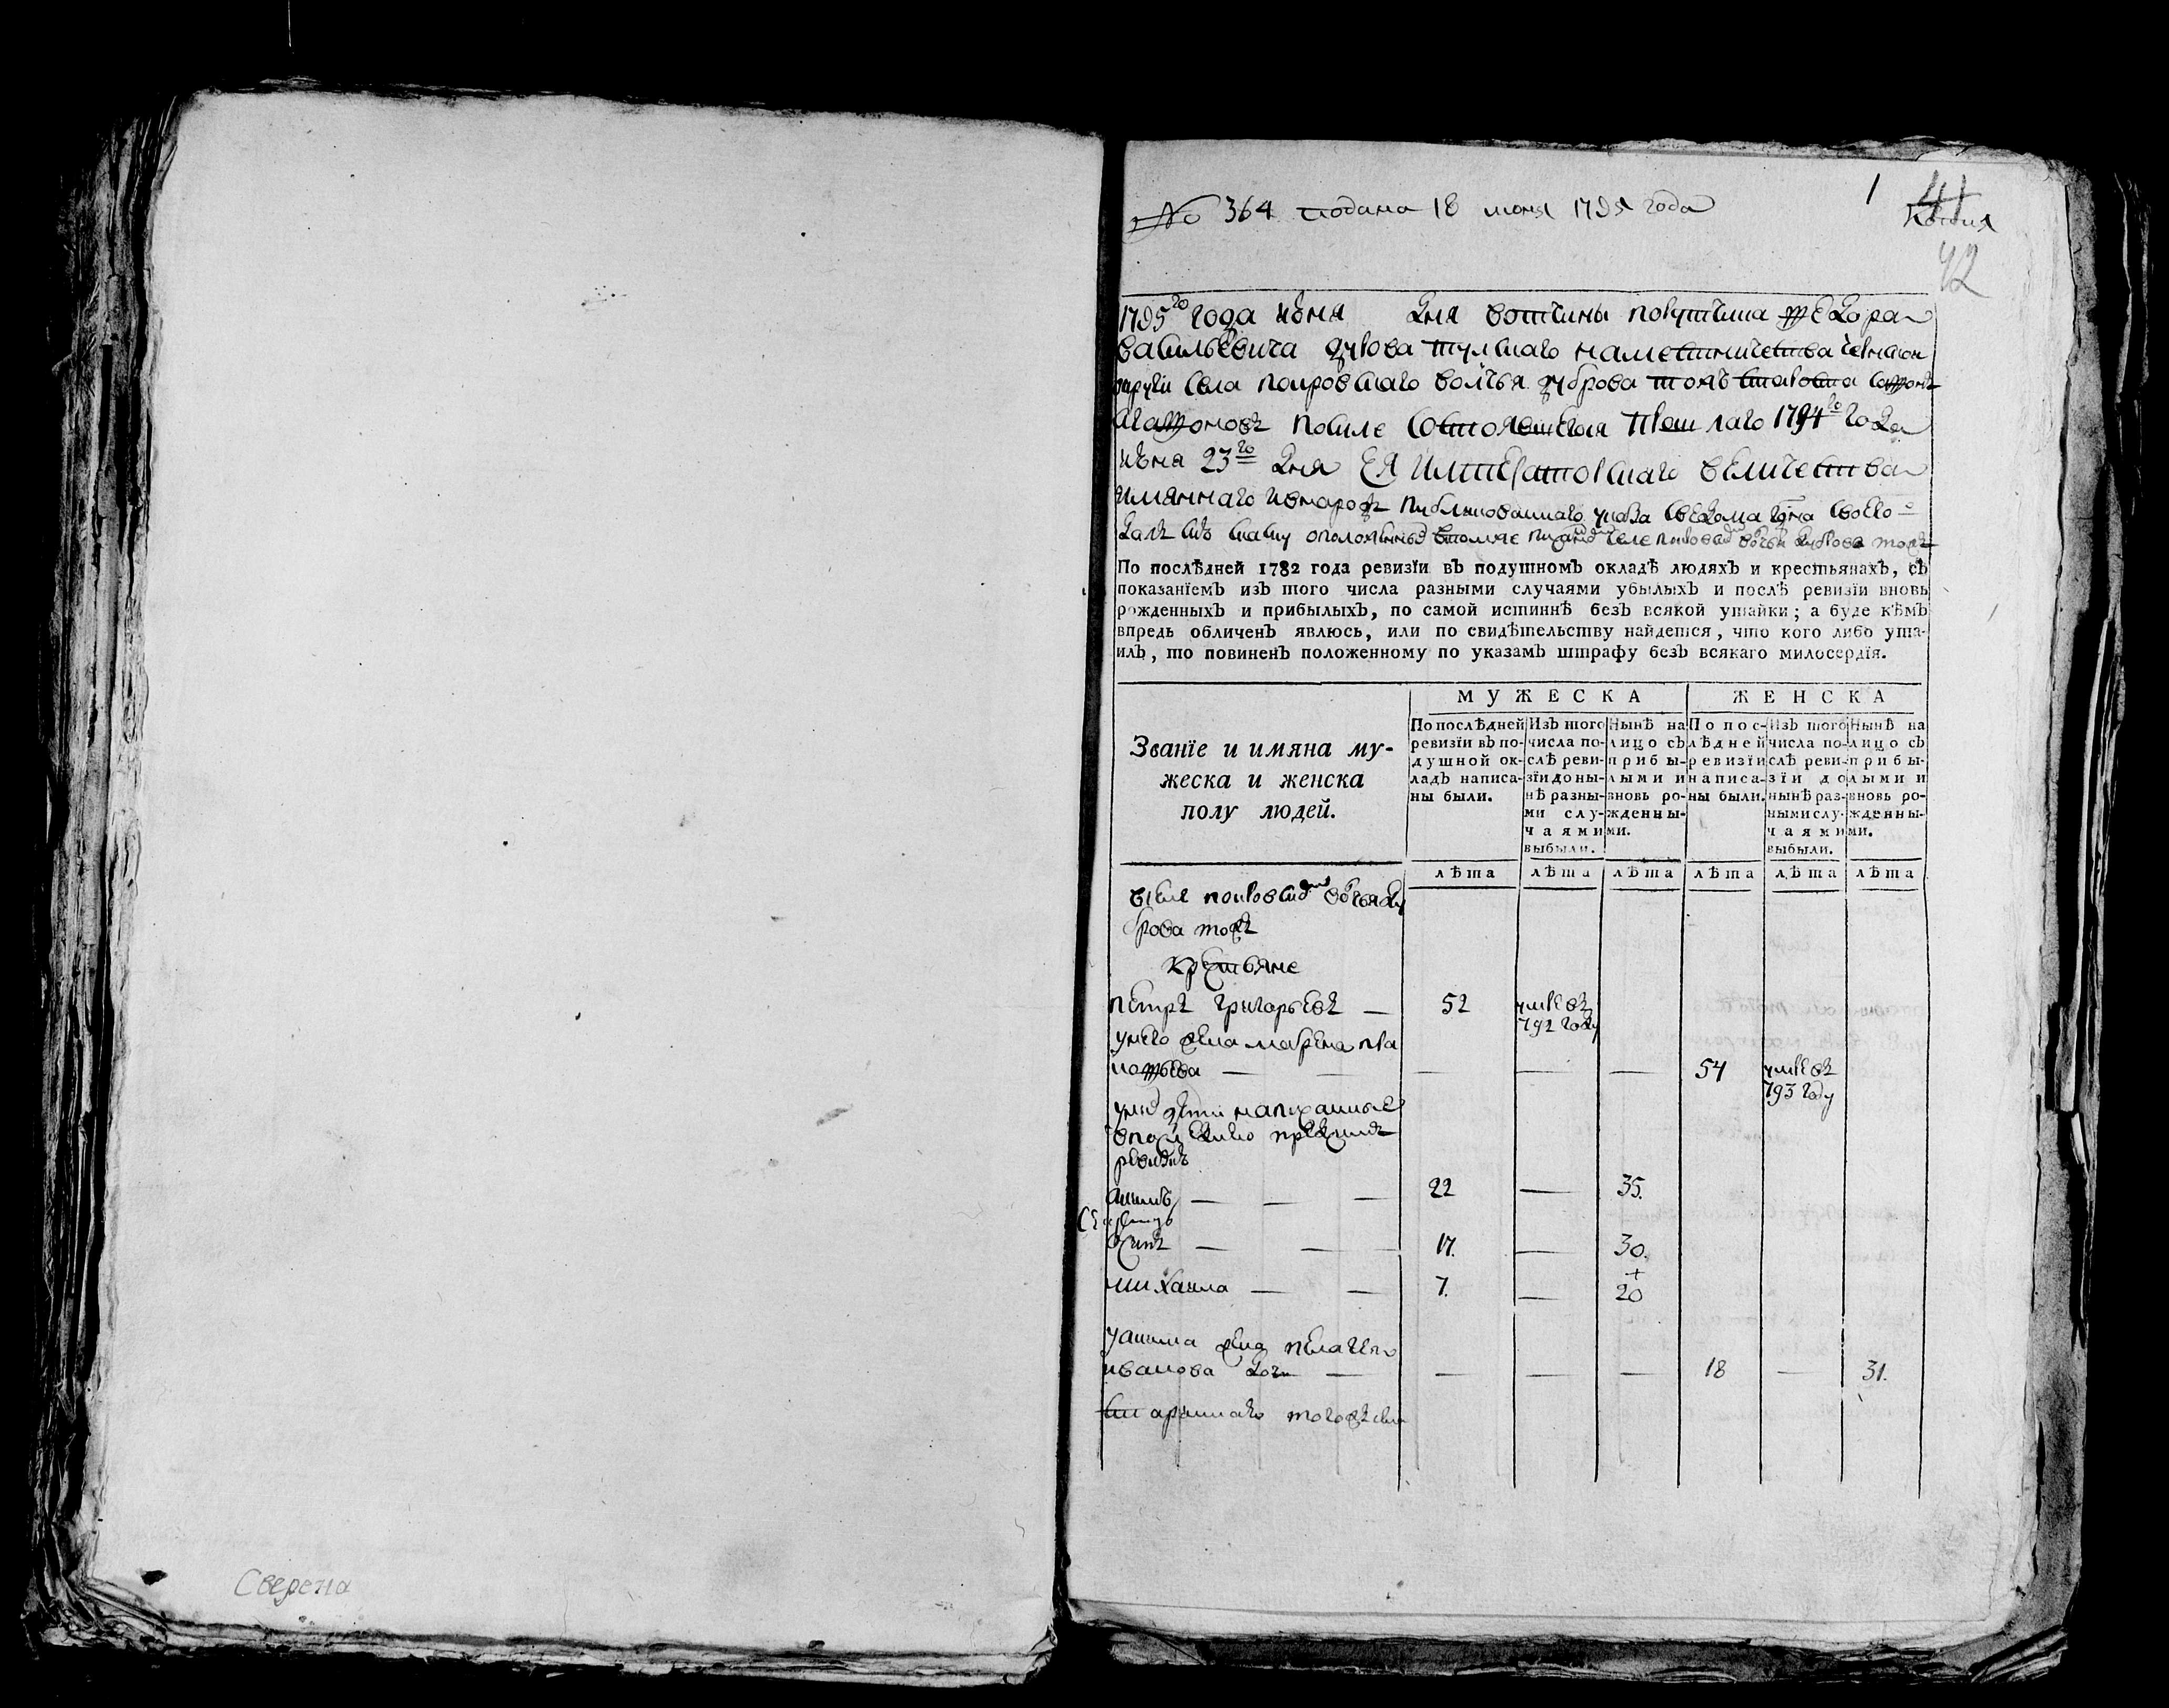 Сверена
№ 364 подана 18 июня 1795 года
1 41
Копия
42
1795го года июня дня вотчины порутчика Федора
Васильевича Зукова тулскаго наместничества Чернской
округи села покровскаго волчья дуброва тожъ староста
Агафоновъ после состоявшагося прошлаго 1794го года
июня 23го дня Ея Императорскаго величества
имяннаго и в народъ публикованнаго указа
По послѣдней 1782 года ревизїи въ подушномъ окладѣ людяхъ и крестьянахъ, съ
показанїемъ изъ того числа разными случаями убылыхъ и послѣ ревизїи вновь
рожденныхъ и прибылыхъ, по самой истиннѣ безъ всякой утайки; а буде кѣмъ
впредь обличенъ явлюсь, или по свидѣтельству найдется, что кого либо ута-
илъ, то повиненъ положенному по указамъ штрафу безъ всякаго милосердїя.
МУЖЕСКА ЖЕНСКА
Званїе и имяна му-
жеска и женска
полу людей.
По послѣдней
ревизїи въ по-
душной ок-
ладъ написа-
ны были.
Изъ того
числа по-
слѣ реви-
зїи до ны-
нѣ разны-
ми слу-
чаями
выбыли.
Нынѣ на
лицо съ
прибы-
лыми и
вновь ро-
жденны-
ми.
По пос-
лѣдней
ревизїи
написа-
ны были.
Изъ того
числа по-
слѣ реви-
зїи до
нынѣ раз-
ными слу-
чаями
выбыли.
Нынѣ на
лицо съ
прибы-
лыми и
вновь ро-
жденны-
ми.
лѣта лѣта лѣта лѣта лѣта лѣта
въ селе покровском волчья ду
брова тожъ
крестьяне
петръ григорьевъ — 52 умре въ
792 году
у него жена марена про
кофьева — — — — — 54 умре въ
793 году
у них дети написанные
в последнею пред сим
ревизию
акимъ — — — 22 — 35.
осипъ — — 17. — 30.
михаила — — 7. — 20
+
у акима жена пелагея
иванова дочь — — — — 18 — 31.
стариннаго того ж села